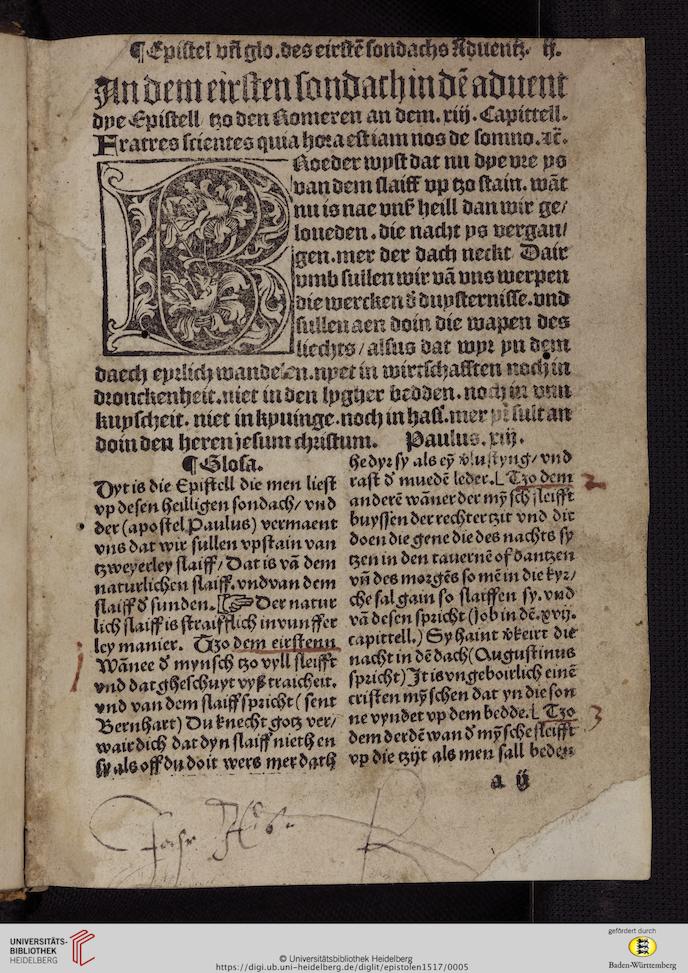 ¶ Epistel vñ glo. des eirstẽ sondachs Aduentz. ij.
An dem eirsten sondach in dẽ aduent
dye Epistell tzo den Romeren an dem. xiij. Capittell.
Fratres scientes quia hora est iam nos de somno. ⁊c̃.
BRoeder wyst dat nu dye vre ys
van dem slaiff vp tzo stain. wãt
nu is nae vnß heill dan wir ge/
loueden. die nacht ys vergan/
gen. mer der dach neckt Dair
vmb sullen wir vã vns werpen
die wercken d̕ duysternisse. vnd
sullen aen doin die wapen des
liechts / alsus dat wyr yn dem
daech eyrlich wandelen. nyet in wirtschafften noch in
dronckenheit. niet in den lygher bedden. noch in vnn
kuyscheit. niet in kyuinge. noch in hass. mer yr sult an
doin den heren jesum christum. Paulus. xiij.
¶ Glosa.
Dyt is die Epistell die men liest
vp desen heilligen sondach / vnd
der (apostel Paulus) vermaent
vns dat wir sullen vpstain van
tzweyerley slaiff / Dat is vã dem
naturlichen slaiff. vnd van dem
slaiff d̕ sunden. [☞ Der natur
lich slaiff is straifflich in vunffer
ley manier. Tzo dem eirstenn
Wãnee d̕ mynsch tzo vyll sleifft
vnd dat gheschuyt vyß traicheit.
vnd van dem slaiff spricht (sent
Bernhart) Du knecht gotz ver/
wair dich dat dyn slaiff nieth en
sy als off du doit wers mer dath
he dyr sy als eỹ v̕lustyng / vnd
rast d̕ muedẽ leder. [ Tzo dem
anderẽ wãner der mỹsch sleifft
buyssen der rechter tzit vnd dit
doen die gene die des nachts sy
tzen in den tauernẽ of dantzen
vñ des morgẽs so mẽ in die kyr/
che sal gain so slaiffen sy. vnd
vã desen spricht (Job in dẽ. xvij.
capittell.) Sy haint v̕keirt die
nacht in dẽ dach (Augustinus
spricht) It is vngeboirlich einẽ
cristen mỹschen dat yn die son
ne vyndet vp dem bedde. [ Tzo
dem derdẽ wan d̕ mỹsche sleifft
vp die tzijt als men sall beden
a ij
1
2
3
UNIVERSITÄTS-
BIBLIOTHEK
HEIDELBERG
© Universitätsbibliothek Heidelberg
https://digi.ub.uni-heidelberg.de/diglit/epistolen1517/0005
gefördert durch
Baden-Württemberg